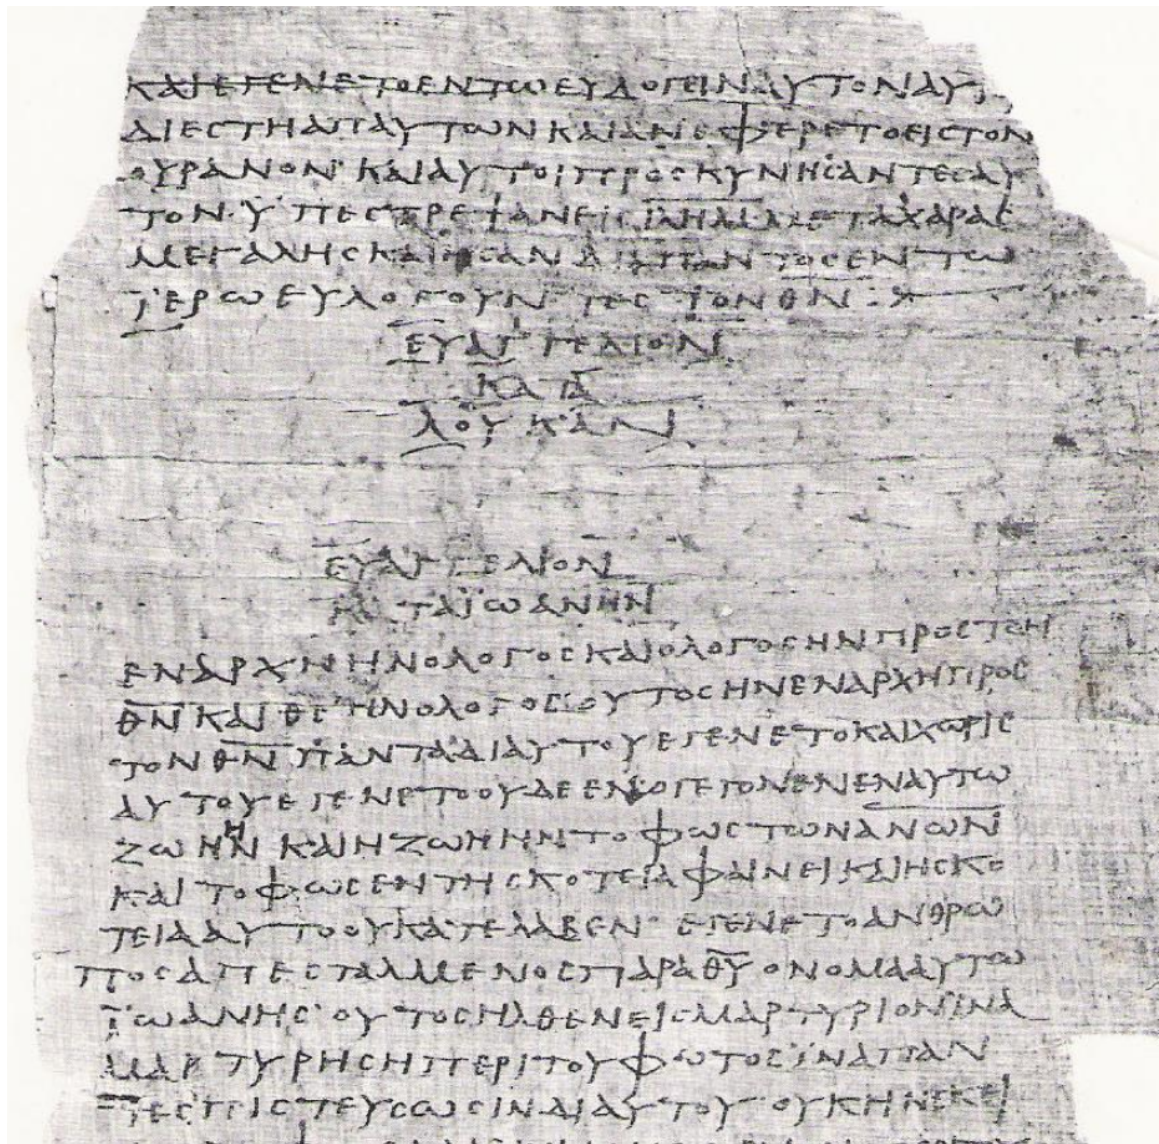 ΚΑΙΕΓΕΝΕΤΟΕΝΤΩΕΥΛΟΓΕΙΝΑΥΤΟΝΑΥ
ΔΙΕϹΤΗΑΠΑΥΤΩΝΚΑΙΑΝΕΦΕΡΕΤΟΕΙϹΤΟΝ
ΟΥΡΑΝΟΝ·ΚΑΙΑΥΤΟΙΠΡΟϹΚΥΝΗϹΑΝΤΕϹΑΥ
ΤΟΝ·ΫΠΕϹΤΡΕΨΑΝΕΙϹΙ̅Λ̅Η̅Μ̅ΜΕΤΑΧΑΡΑϹ
ΜΕΓΑΛΗϹΚΑΙΗϹΑΝΔΙΑΠΑΝΤΟϹΕΝΤΩ
ΪΕΡΩΕΥΛΟΓΟΥΝΤΕϹΤΟΝΘ̅Ν̅
ΕΥΑΓΓΕΛΙΟΝ
ΚΑΤΑ
ΛΟΥΚΑΝ
ΕΥΑΓΓΕΛΙΟΝ
ΚΑΤΑΪΩΑΝΗΝ
ΕΝΑΡΧΗΗΝΟΛΟΓΟϹΚΑΙΟΛΟΓΟϹΗΝΠΡΟϹΤΟΝ
Θ̅Ν̅ΚΑΙΘ̅Ϲ̅ΗΝΟΛΟΓΟϹ·ΟΥΤΟϹΗΝΕΝΑΡΧΗΠΡΟϹ
ΤΟΝΘ̅Ν̅ΠΑΝΤΑΔΙΑΥΤΟΥΕΓΕΝΕΤΟΚΑΙΧΩΡΙϹ
ΑΥΤΟΥΕΓΕΝΕΤΟΟΥΔΕΕΝΟΓΕΓΟΝΕΝΕΝΑΥΤΩ
ΖΩΗΗΝΚΑΙΗΖΩΗΗΝΤΟΦΩϹΤΩΝΑ̅Ν̅Ω̅Ν̅
ΚΑΙΤΟΦΩϹΕΝΤΗϹΚΟΤΕΙΑΦΑΙΝΕΙΚΑΙΗϹΚΟ
ΤΕΙΑΑΥΤΟΟΥΚΑΤΕΛΑΒΕΝ·ΕΓΕΝΕΤΟΑΝΘΡΩ
ΠΟϹΑΠΕϹΤΑΛΜΕΝΟϹΠΑΡΑΘ̅Υ̅ΟΝΟΜΑΑΥΤΩ
ΪΩΑΝΗϹ·ΟΥΤΟϹΗΛΘΕΝΕΙϹΜΑΡΤΥΡΙΟΝΪΝΑ
ΜΑΡΤΥΡΗϹΗΠΕΡΙΤΟΥΦΩΤΟϹΪΝΑΠΑΝ
ΤΕϹΠΙϹΤΕΥϹΩϹΙΝΔΙΑΥΤΟΥ·ΟΥΚΗΝΕΚΕΙ